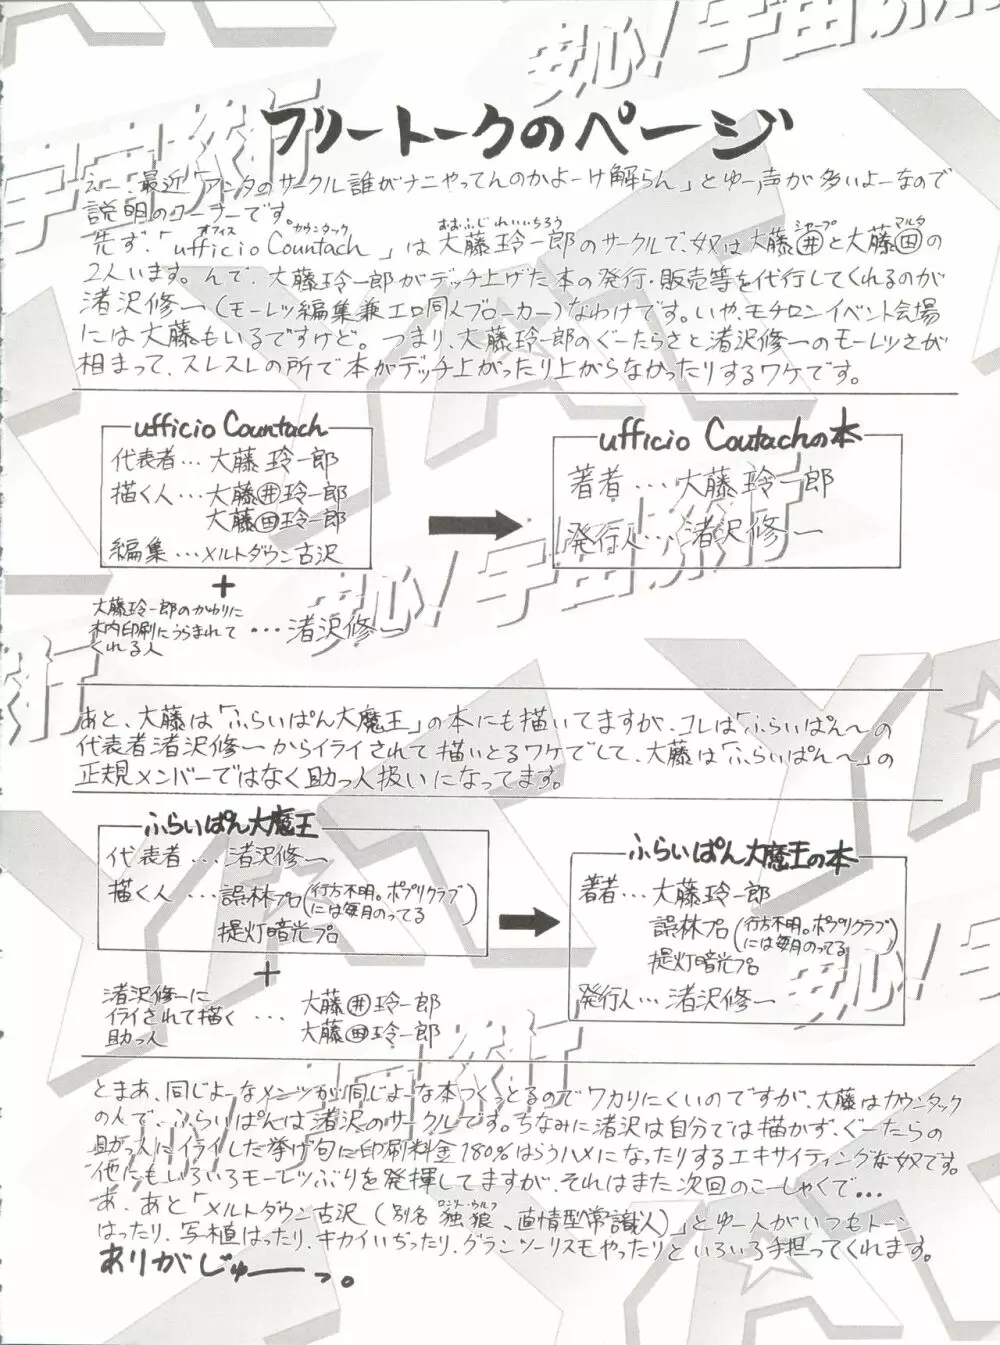 フリートークのページ
えー、最近「アンタのサークル誰がナニやってんのかよーけ解らん」とゆー声が多いよーなので
説明のコーナーです。
先ず、「ufficio Countach」は大藤玲一郎のサークルで、奴は大藤㊓と大藤田の
オフィス カウンタック おおふじ れいいちろう シャープ マルタ
2人います。んで、大藤玲一郎がデッチ上げた本の発行・販売等を代行してくれるのが
渚沢修一(モーレツ編集兼エロ同人ブローカー)なわけです。いや、モチロンイベント会場
には大藤もいるですけど。つまり、大藤玲一郎のぐーたらさと渚沢修一のモーレツさが
相まって、スレスレの所で本がデッチ上がったり上がらなかったりするワケです。
ufficio Countach
代表者…大藤玲一郎
描く人…大藤井玲一郎
大藤田玲一郎
編集…メルトダウン古沢
+
大藤玲一郎のかわりに
木内印刷にうらまれて
くれる人
…渚沢修一
ufficio Coutachの本
著者…大藤玲一郎
発行人…渚沢修一
あと、大藤は「ふらいぱん大魔王」の本にも描いてますが、コレは「ふらいぱん〜」の
代表者渚沢修一からイライされて描いとるワケでして、大藤は「ふらいぱん〜」の
正規メンバーではなく助っ人扱いになってます。
ふらいぱん大魔王
代表者…渚沢修一
描く人…誤林プロ(行方不明。ポプリクラブには毎月のってる)
提灯暗光プロ
+
渚沢修一に
イライされて描く
助っ人
…大藤井玲一郎
大藤田玲一郎
ふらいぱん大魔王の本
著者…大藤玲一郎
誤林プロ(行方不明。ポプリクラブには毎月のってる)
提灯暗光プロ
発行人…渚沢修一
とまあ、同じよーなメンツが同じよーな本つくっとるのでワカりにくいのですが、大藤はカウンタック
の人で、ふらいぱんは渚沢のサークルです。ちなみに渚沢は自分では描かず、ぐーたらの
助っ人にイライした挙げ句に印刷料金180%はらうハメになったりするエキサイティングな奴です。
他にもいろいろモーレツぶりを発揮してますが、それはまた次回のこーしゃくで…
あ、あと「メルトダウン古沢(別名独狼、直情型常識人)」とゆー人がいつもトーン
ロンリーウルフ
はったり、写植はったり、キカイいぢったり、グランツーリスモやったりといろいろ手担ってくれます。
ありがじゅーっ。
安心!宇宙旅行
YAT